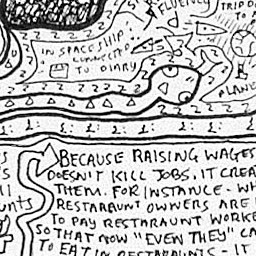 FLUENCY
TRIP
IN SPACESHIP
CONNECTED
TO DIARY
BECAUSE RAISING WAGES
DOESN'T KILL JOBS. IT CREA
THEM. FOR INSTANCE - WH
RESTARAUNT OWNERS ARE
TO PAY RESTARAUNT WORKE
SO THAT NOW "EVEN THEY" CA
TO EAT IN RESTARAUNTS - IT